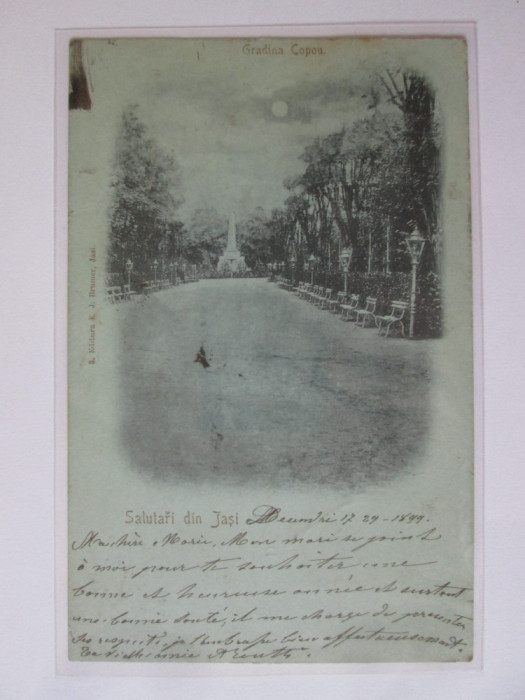 Gradina Copou.
E. Editura E. J. Brunner, Jasi.
Salutări din Jași Decembri 17 29-1899.
Ma chère Marie, Mon mari se joint
à moi pour te souhaiter une
bonne et heureuse année et surtout
une bonne santé, il me charge de presenter
ses respects, je t'embrasse bien affectueusement.
Ta amie